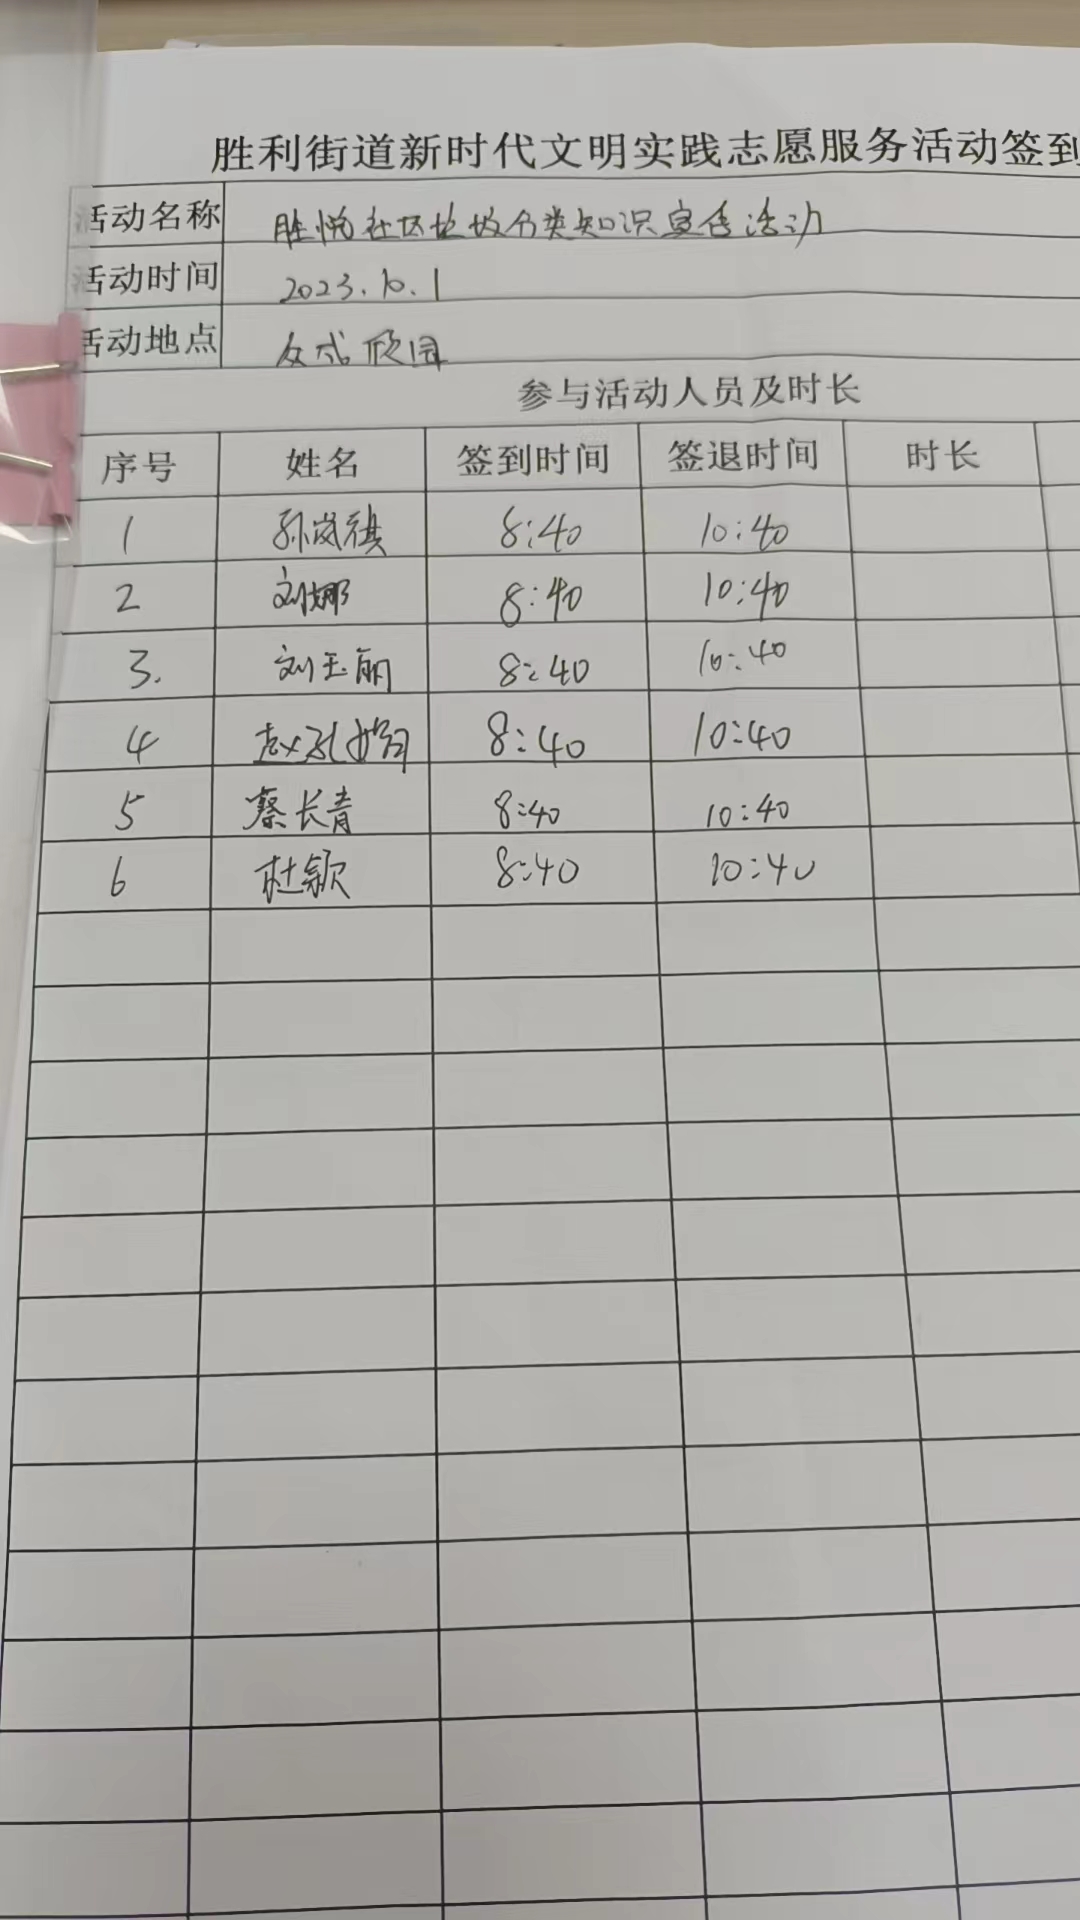 胜利街道新时代文明实践志愿服务活动签到
活动名称 胜悦社区垃圾分类知识宣传活动
活动时间 2023.10.1
活动地点 众成欣园
参与活动人员及时长
序号 姓名 签到时间 签退时间 时长
1 孙岚祺 8:40 10:40
2 刘娜 8:40 10:40
3. 刘玉丽 8:40 10:40
4 赵 8:40 10:40
5 蔡长青 8:40 10:40
6 杜颖 8:40 10:40